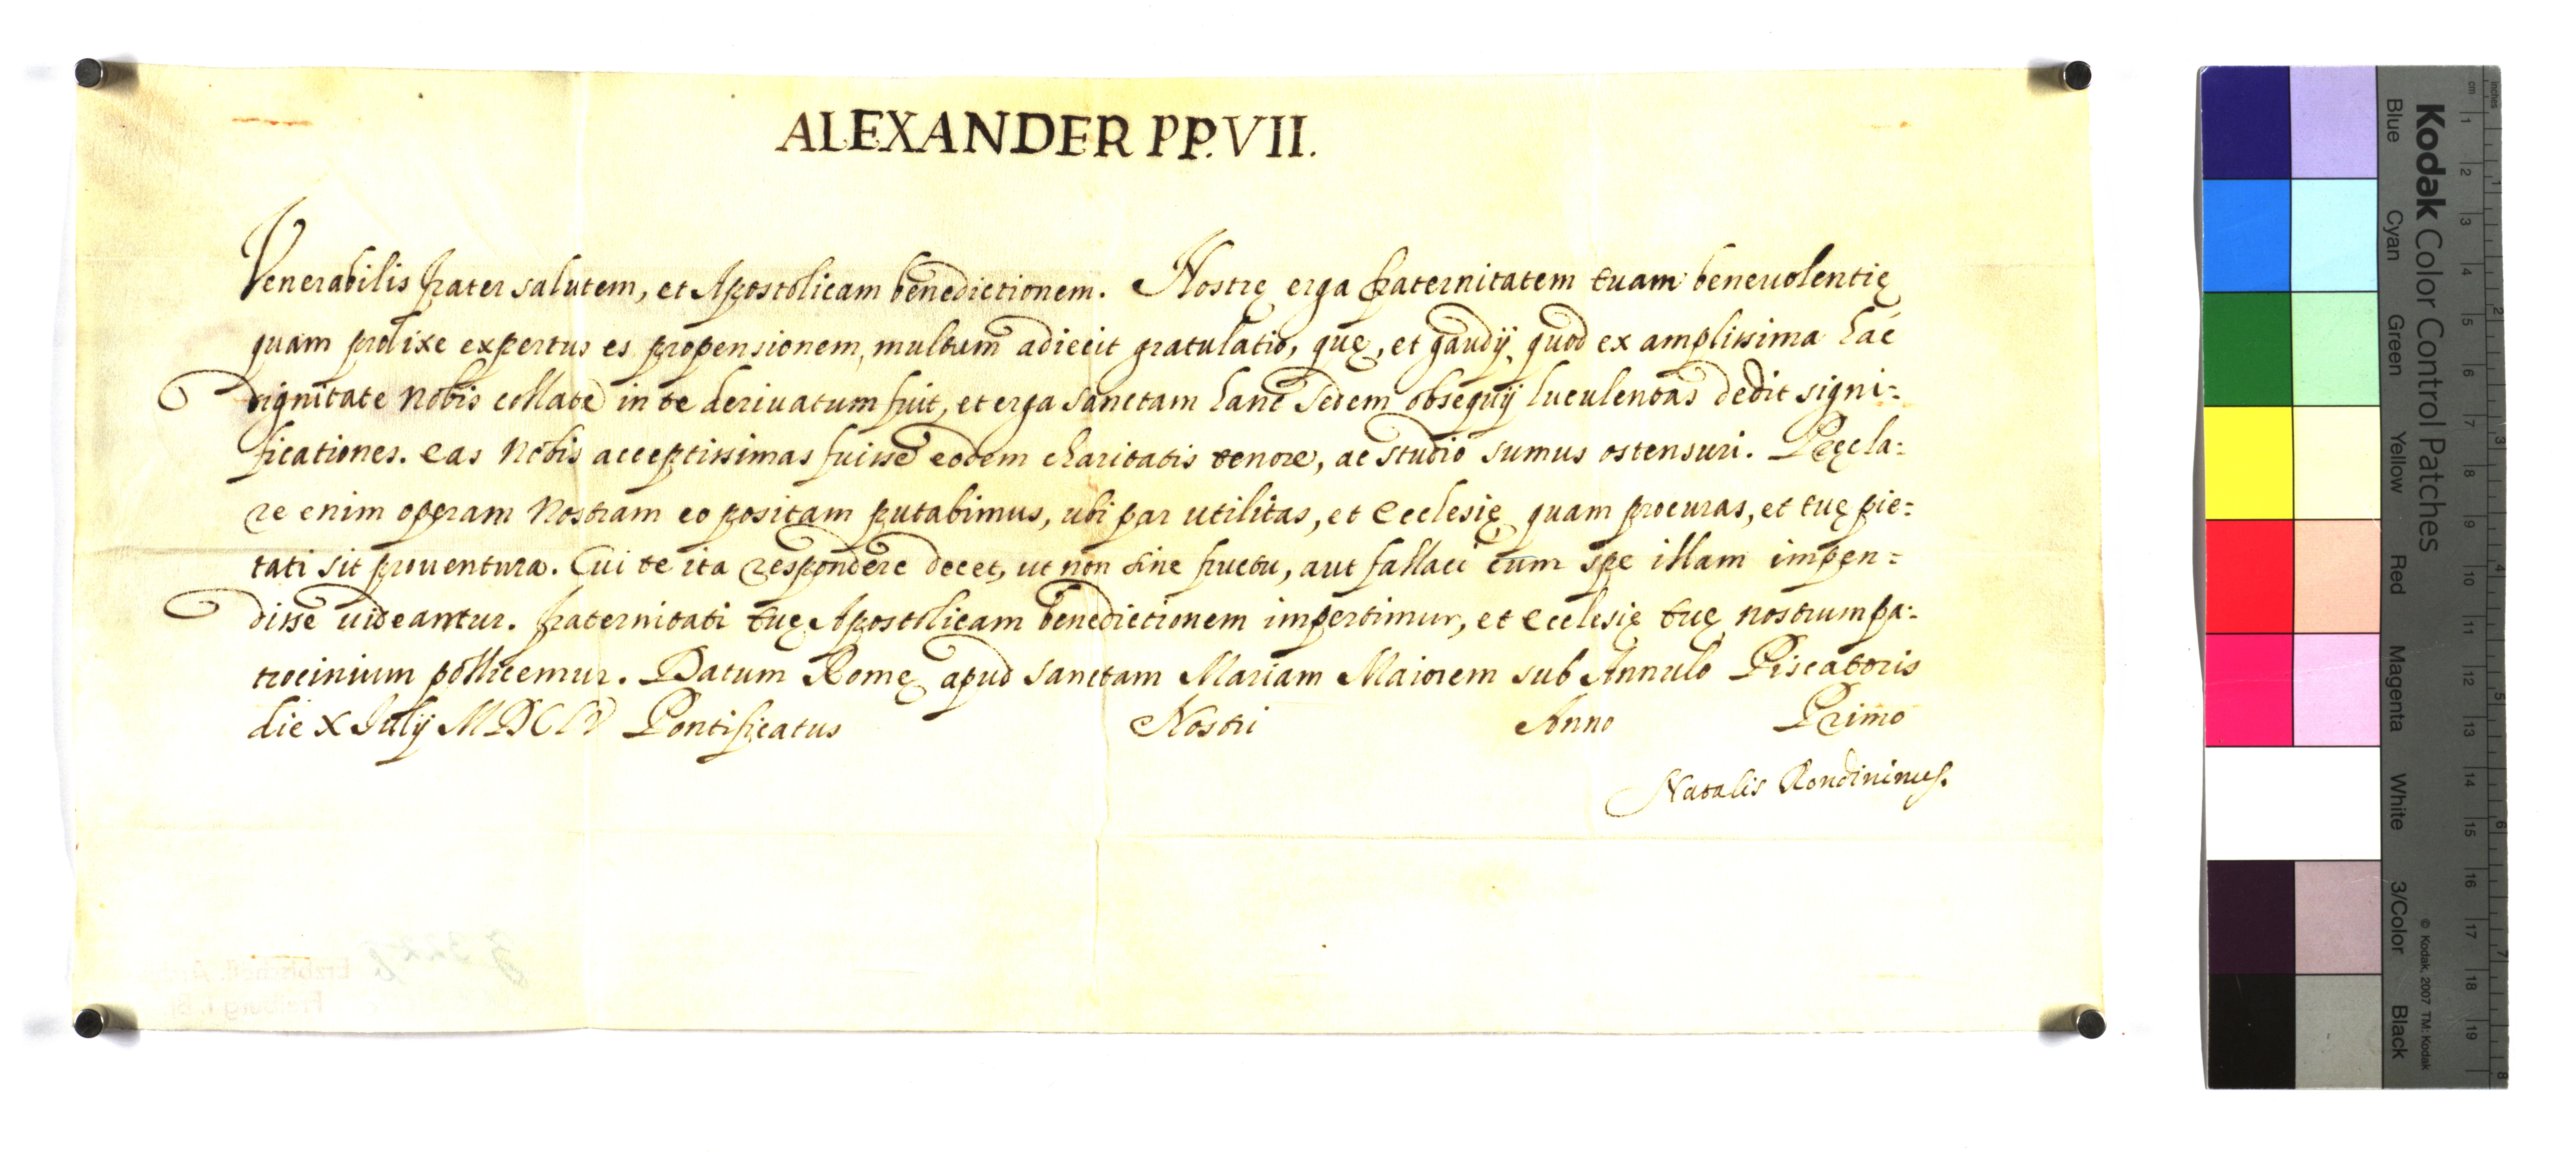 ALEXANDER PP. VII.
Venerabilis frater salutem, et Apostolicam benedictionem. Nostrę erga fraternitatem tuam beneuolentię
quam prolixe expertus es propensionem, multum adiecit gratulatio, quę, et gaudij, quod ex amplissima hac
dignitate Nobis collate in te deriuatum fuit, et erga Sanctam hanc Sedem obsequij luculentas dedit signi=
ficationes. Eas Nobis acceptissimas fuisse eodem charitatis tenore, ac studio sumus ostensuri. Pręcla=
re enim operam Nostram eo positam putabimus, ubi par utilitas, et Ecclesię quam procuras, et tuę pie=
tati sit prouentura. Cui te ita respondere decet, ut non sine fructu, aut fallaci cum spe illam impen=
disse uideamur. Fraternitati tuę Apostolicam benedictionem impertimur, et Ecclesię tuę nostrum pa=
trocinium pollicemur. Datum Romę apud Sanctam Mariam Maiorem sub Annulo Piscatoris
die X Iulij MDCLV Pontificatus Nostri Anno Primo
Natalis Rondininus.
Kodak Color Control Patches
Blue Cyan Green Yellow Red Magenta White 3/Color Black
© Kodak, 2007 TM: Kodak
cm 1 2 3 4 5 6 7 8 9 10 11 12 13 14 15 16 17 18 19
inches 1 2 3 4 5 6 7 8